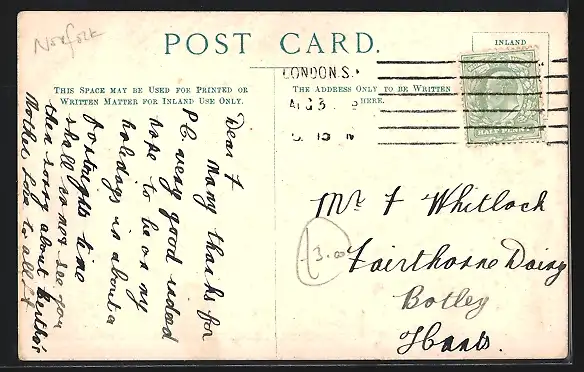 Norfolk
POST CARD.
INLAND
THIS SPACE MAY BE USED FOR PRINTED OR
WRITTEN MATTER FOR INLAND USE ONLY.
THE ADDRESS ONLY TO BE WRITTEN
HERE.
LONDON. S.
HALFPENNY
Dear F
Many thanks for
PC very good indeed
hope to be on my
holidays in about a
fortnights time
shall come & see you
then sorry about Bertha's
Mother Love to all
Mr F Whitlock
Fairthorne Dairy
Botley
Hants.
3.00